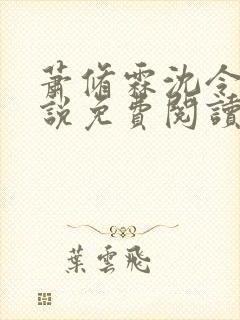 蕭脩霖沈令
說免費閱讀
葉雲飛